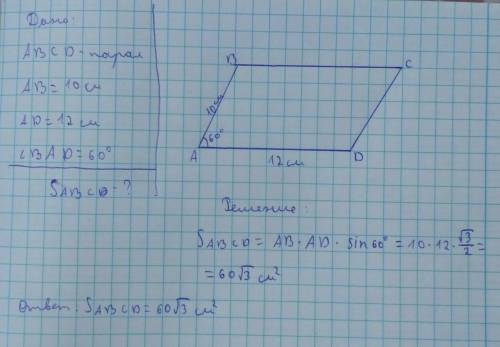 Дано:
ABCD - парал
AB = 10 см
AD = 12 см
∠BAD = 60°
S ABCD - ?
B
C
10 см
60°
A
D
12 см
Решение:
S ABCD = AB · AD · sin 60° = 10 · 12 · √3/2 =
= 60√3 см²
Ответ: S ABCD = 60√3 см²